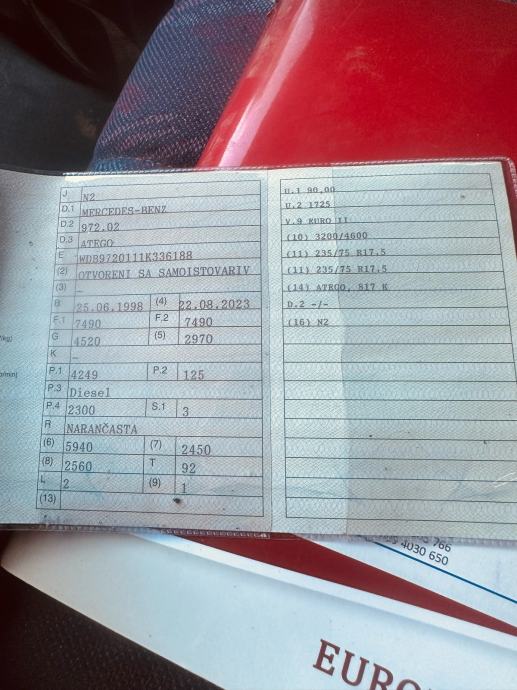 J N2
D.1 MERCEDES-BENZ
D.2 972.02
D.3 ATEGO
E WDB9720111K336188
(2) OTVORENI SA SAMOISTOVARIV
(3) -
B 25.06.1998 (4) 22.08.2023
F.1 7490 F.2 7490
G 4520 (5) 2970
K -
P.1 4249 P.2 125
P.3 Diesel
P.4 2300 S.1 3
R NARANČASTA
(6) 5940 (7) 2450
(8) 2560 T 92
L 2 (9) 1
(13)
U.1 90,00
U.2 1725
V.9 EURO II
(10) 3200/4600
(11) 235/75 R17.5
(11) 235/75 R17.5
(14) ATEGO, 817 K
D.2 -/-
(16) N2
/kg)
/min)
766
4030 650
EURO